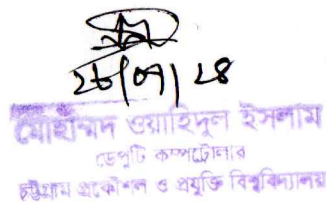 ২৮/০৭/২৪
মোহাম্মদ ওয়াহিদুল ইসলাম
ডেপুটি কম্পট্রোলার
চট্টগ্রাম প্রকৌশল ও প্রযুক্তি বিশ্ববিদ্যালয়